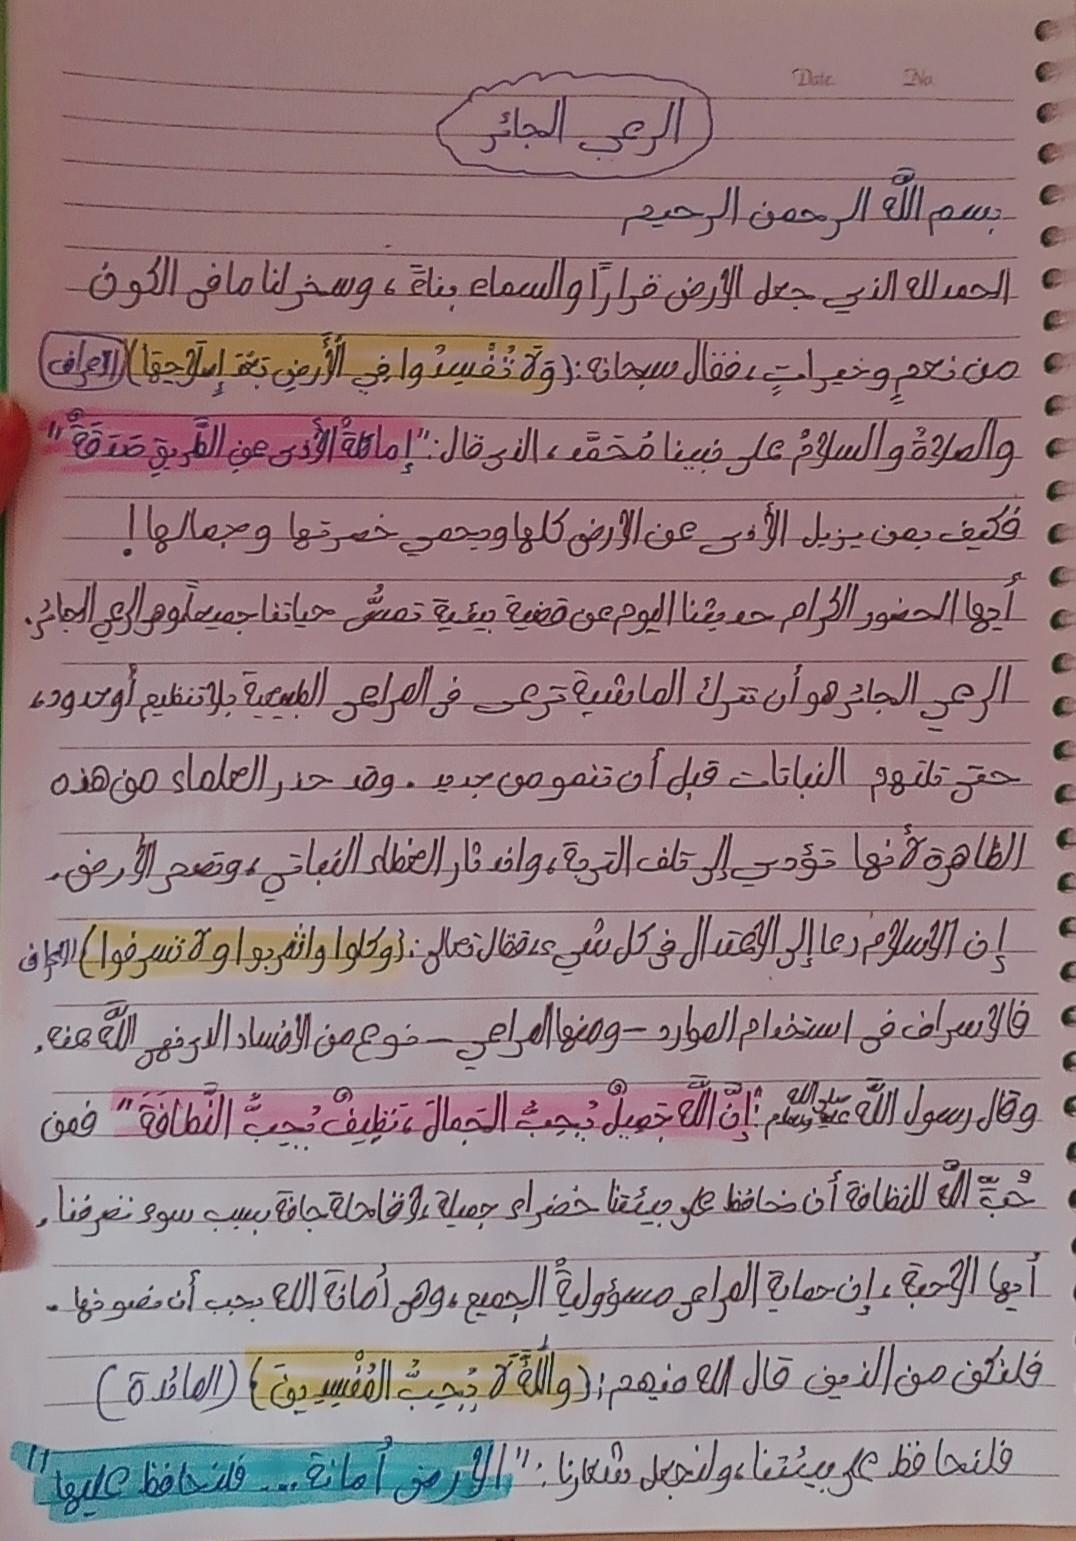 Date. No.
الرعي الجائر
بسم اللَّه الرحمن الرحيم
الحمد لله الذي جعل الأرض قرارًا والسماء بناءً، وسخر لنا ما في الكون
من نعمٍ وخيراتٍ، فقال سبحانه: (وَلَا تُفْسِدُوا فِي الْأَرْضِ بَعْدَ إِصْلَاحِهَا) (الاعراف)
والصلاةُ والسلامُ على نبينا مُحَمَّد، الذي قال: "إماطةُ الأذى عنِ الطَّريقِ صَدَقَةٌ"
فكيف بمن يزيل الأذى عن الأرض كلها ويحمي خضرتها وجمالها!
أيها الحضور الكرام حديثنا اليوم عن قضية بيئية تمسُّ حياتنا جميعاً وهي الرعي الجائر.
الرعي الجائر هو أن تترك الماشية ترعى في المراعي الطبيعية بلا تنظيم أو حدود،
حتى تلتهم النباتات قبل أن تنمو من جديد. وقد حذر العلماء من هذه
الظاهرة لأنها تؤدي إلى تلف التربة، واندثار الغطاء النباتي، وتصحر الأرض.
إن الإسلام دعا إلى الاعتدال في كل شيء، فقال تعالى: (وكلوا واشربوا ولا تسرفوا) الاعراف
فالإسراف في استخدام الموارد – ومنها المراعي – نوع من الإفساد الذي نهى اللَّه عنه.
وقال رسول اللَّه صلى الله عليه وسلم: "إنَّ اللَّهَ جَمِيلٌ يُحِبُّ الجَمالَ، نَظِيفٌ يُحِبُّ النَّظَافَةَ" فمن
حُبِّ اللَّه للنظافة أن نحافظ على بيئتنا خضراء جميلة، لا قاحلة جافة بسبب سوء تصرفنا.
أيها الأحبة، إن حماية المراعي مسؤوليةُ الجميع، وهي أمانة الله يجب أن نصونها.
فلنكن من الذين قال الله فيهم: (واللَّهُ لَا يُحِبُّ المُفْسِدِينَ) (المائدة)
فلنحافظ على بيئتنا، ولنجعل شعارنا: "الأرض أمانة... فلنحافظ عليها"